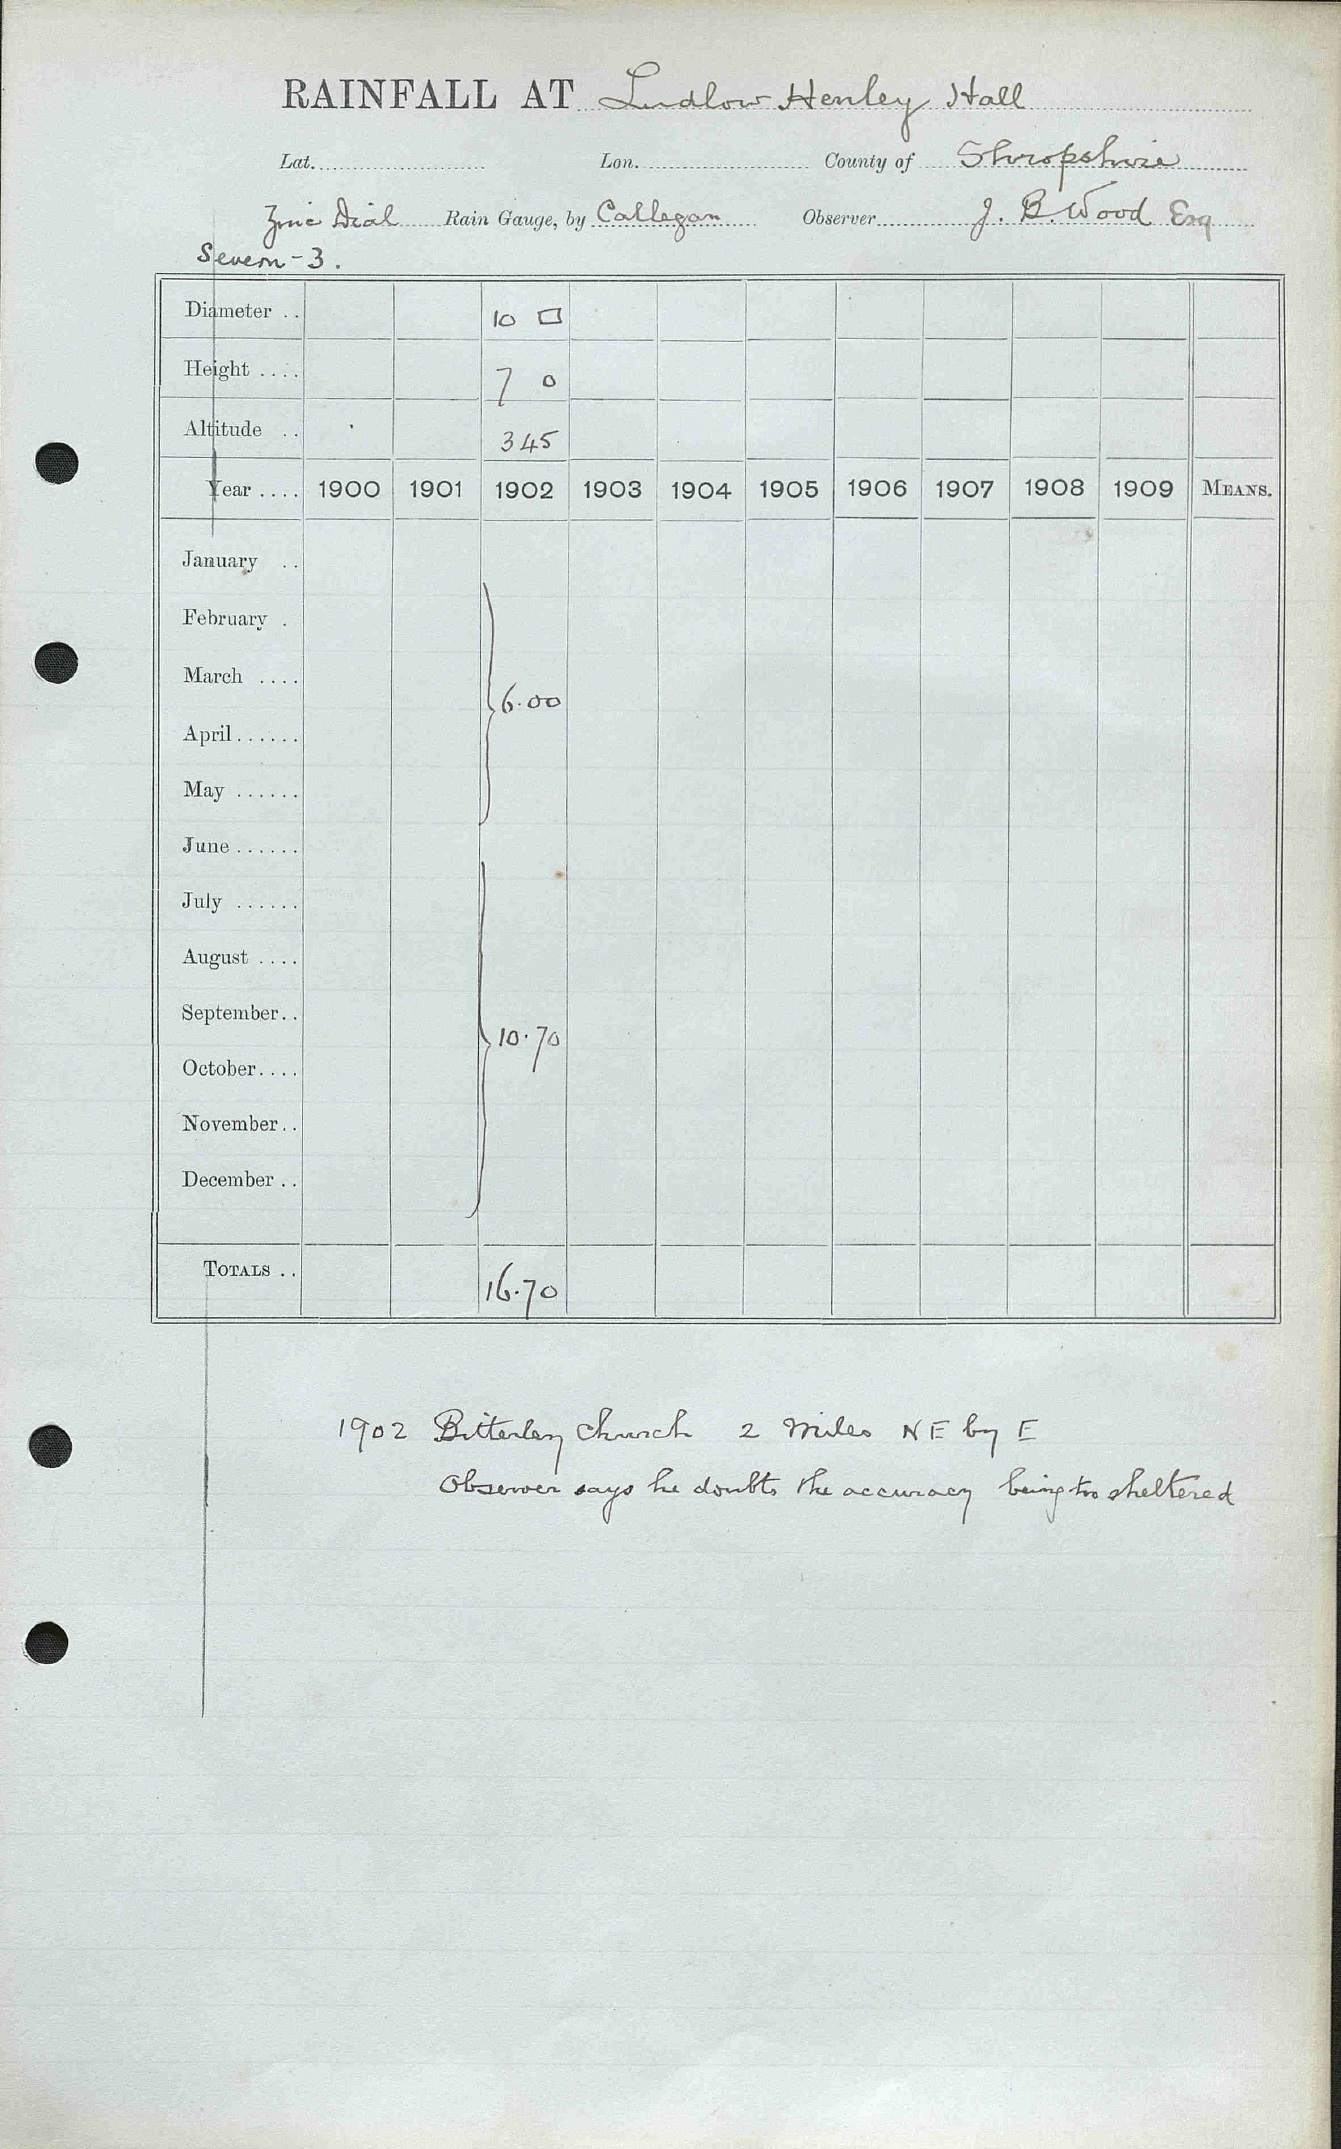 RAINFALL AT Ludlow Henley Hall
Lat. Lon. County of Shropshire
Zinc Dial Rain Gauge, by Callegan Observer J. B. Wood Esq
Severn - 3.
Diameter .. 10 □
Height .... 7 0
Altitude .. 345
Year .... 1900 1901 1902 1903 1904 1905 1906 1907 1908 1909 MEANS.
January ..
February .
March ....
6.00
April......
May ......
June ......
July ......
August ....
September..
10.70
October....
November..
December ..
TOTALS .. 16.70
1902 Bitterley Church 2 miles NE by E
Observer says he doubts the accuracy being too sheltered